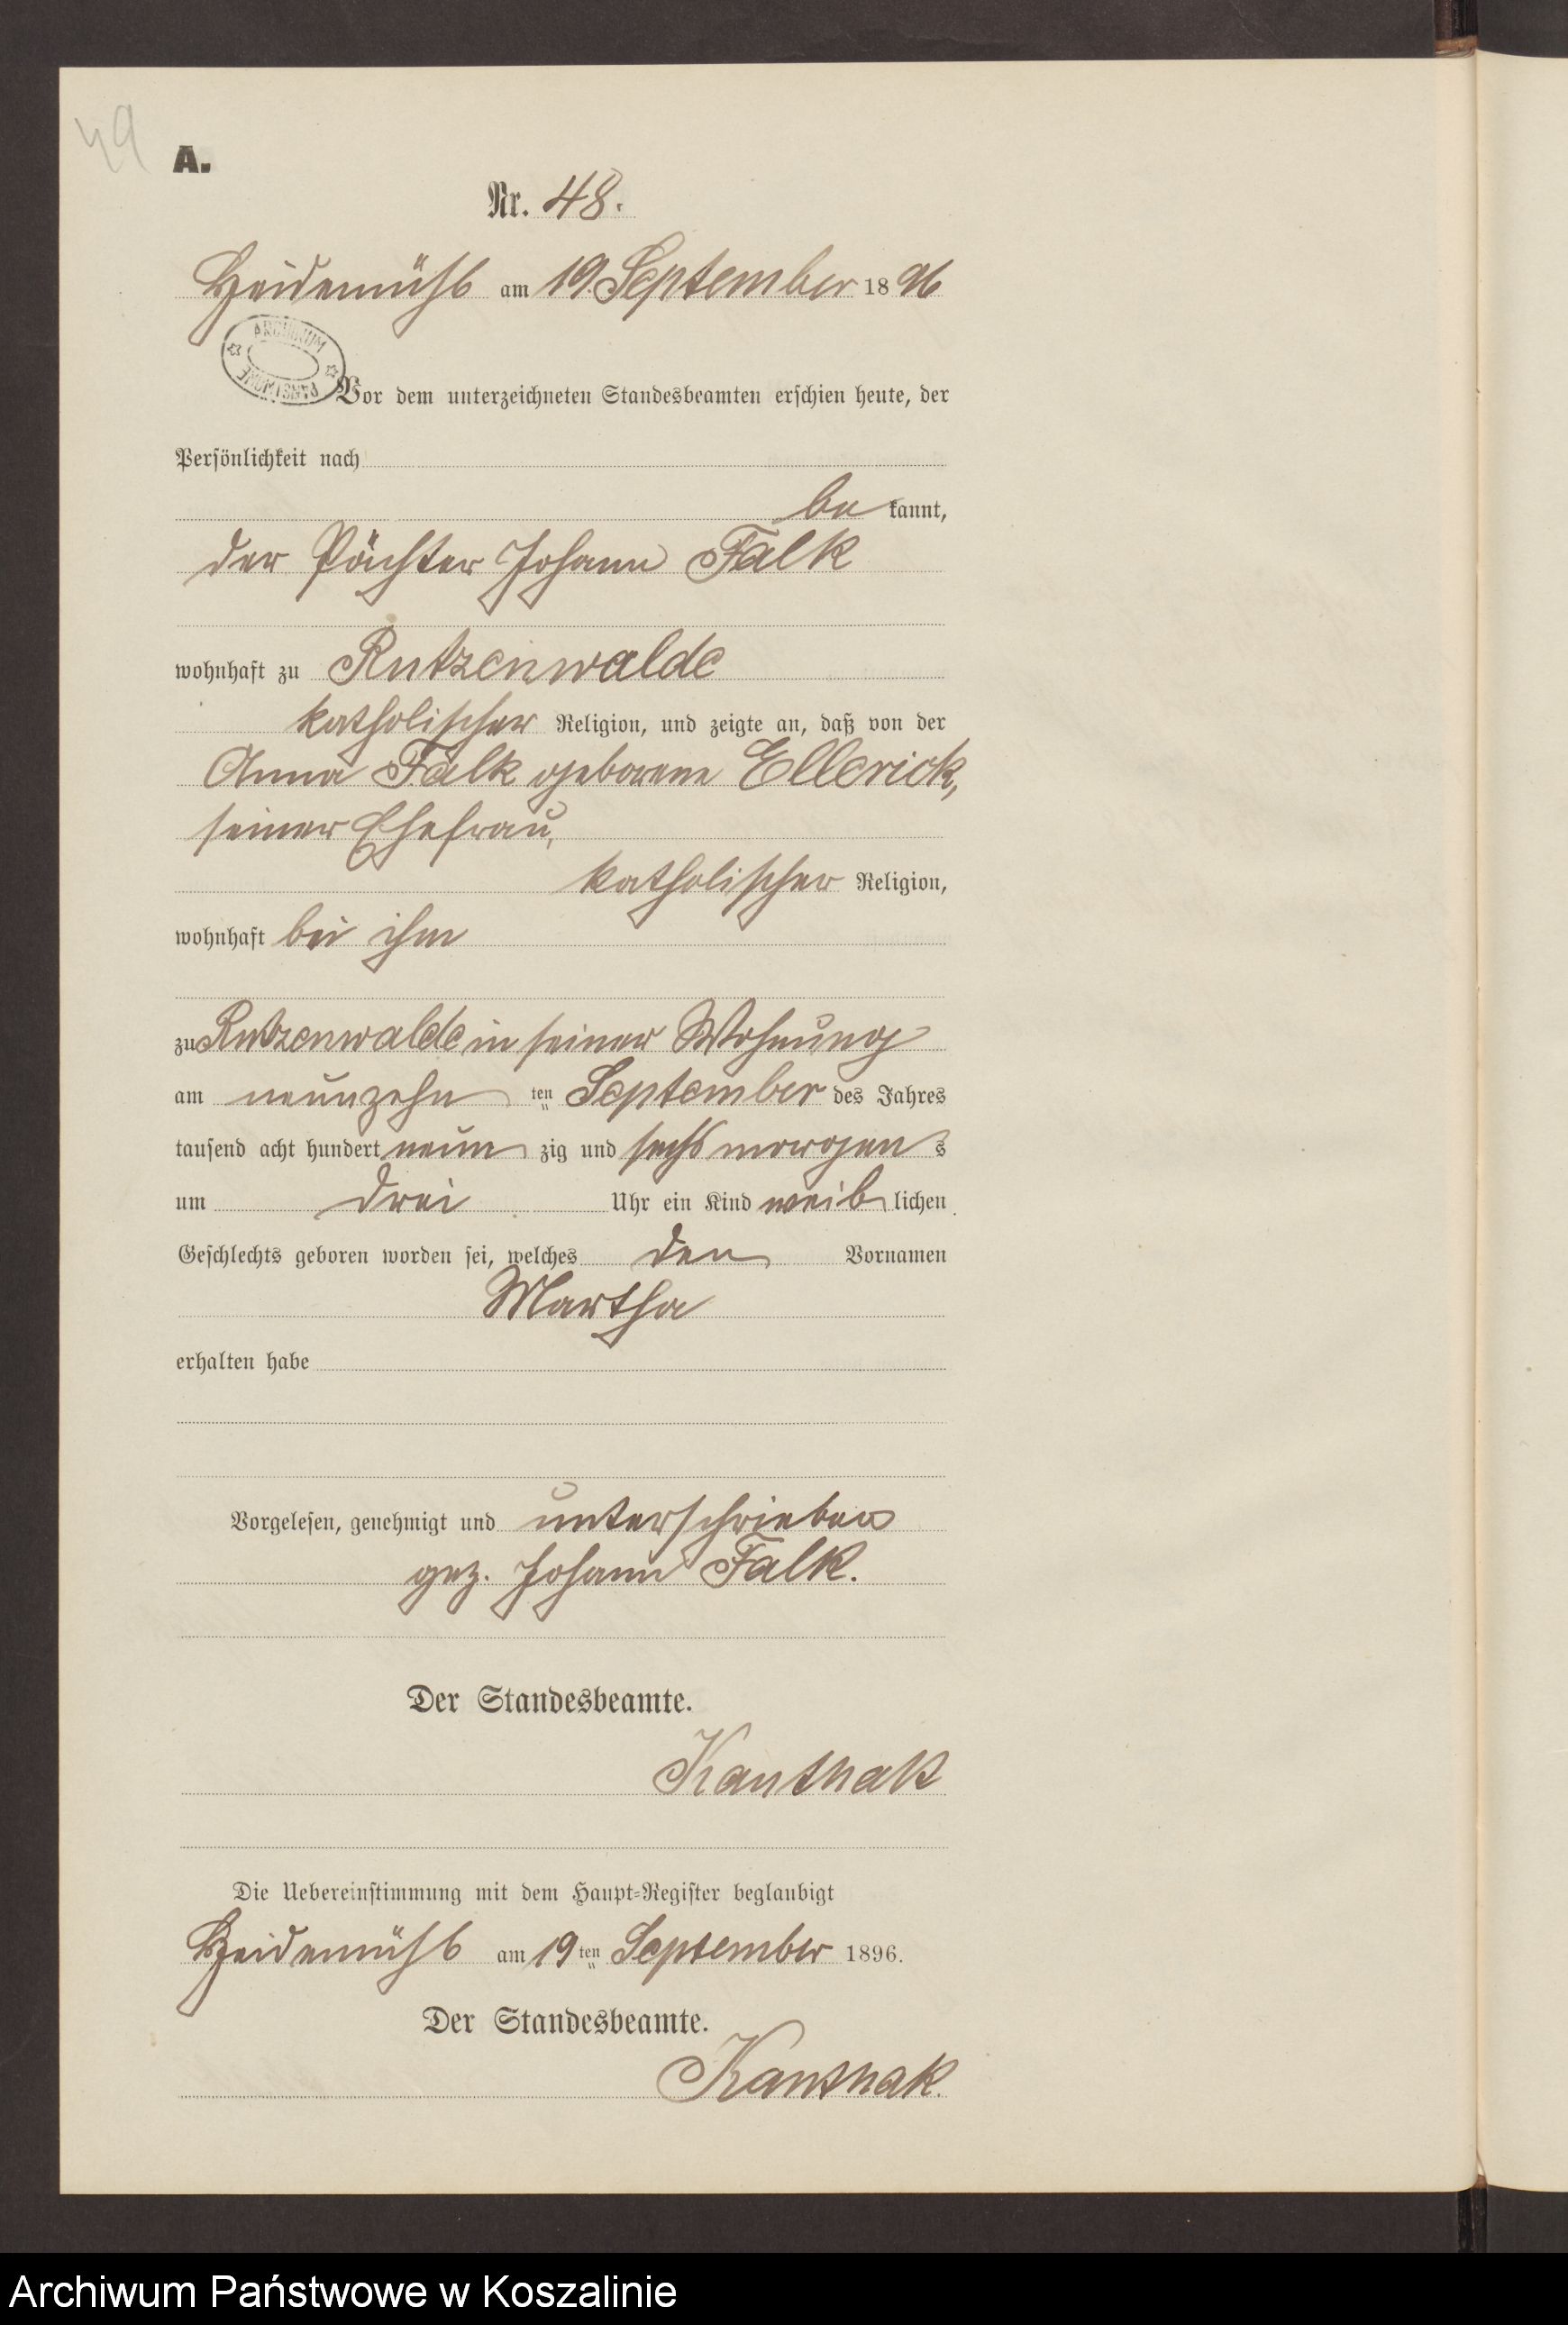 49
A.
Nr. 48.
Heidemühl am 19. September 1896
ARCHIWUM
PAŃSTWOWE
Vor dem unterzeichneten Standesbeamten erschien heute, der
Persönlichkeit nach
be kannt,
der Pächter Johann Falk
wohnhaft zu Rutzenwalde
katholischer Religion, und zeigte an, daß von der
Anna Falk geborene Ellerick,
seiner Ehefrau,
katholischer Religion,
wohnhaft bei ihm
zu Rutzenwalde in seiner Wohnung
am neunzehn ten September des Jahres
tausend acht hundert neun zig und sechs morgen s
um drei Uhr ein Kind weib lichen
Geschlechts geboren worden sei, welches den Vornamen
Martha
erhalten habe
Vorgelesen, genehmigt und unterschrieben
gez. Johann Falk.
Der Standesbeamte.
Kanthak
Die Uebereinstimmung mit dem Haupt-Register beglaubigt
Heidemühl am 19ten September 1896.
Der Standesbeamte.
Kanthak.
Archiwum Państwowe w Koszalinie